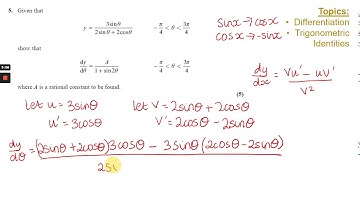 5. Given that
y = 3sinθ / 2sinθ + 2cosθ    -π/4 < θ < 3π/4
show that
dy/dθ = A / 1 + sin2θ    -π/4 < θ < 3π/4
where A is a rational constant to be found.
(5)
Topics:
• Differentiation
• Trigonometric
Identities
sinx → cosx
cosx → -sinx
dy/dx = vu' - uv' / v²
let u = 3sinθ    let v = 2sinθ + 2cosθ
u' = 3cosθ    v' = 2cosθ - 2sinθ
dy/dθ = (2sinθ + 2cosθ)3cosθ - 3sinθ(2cosθ - 2sinθ)
2si